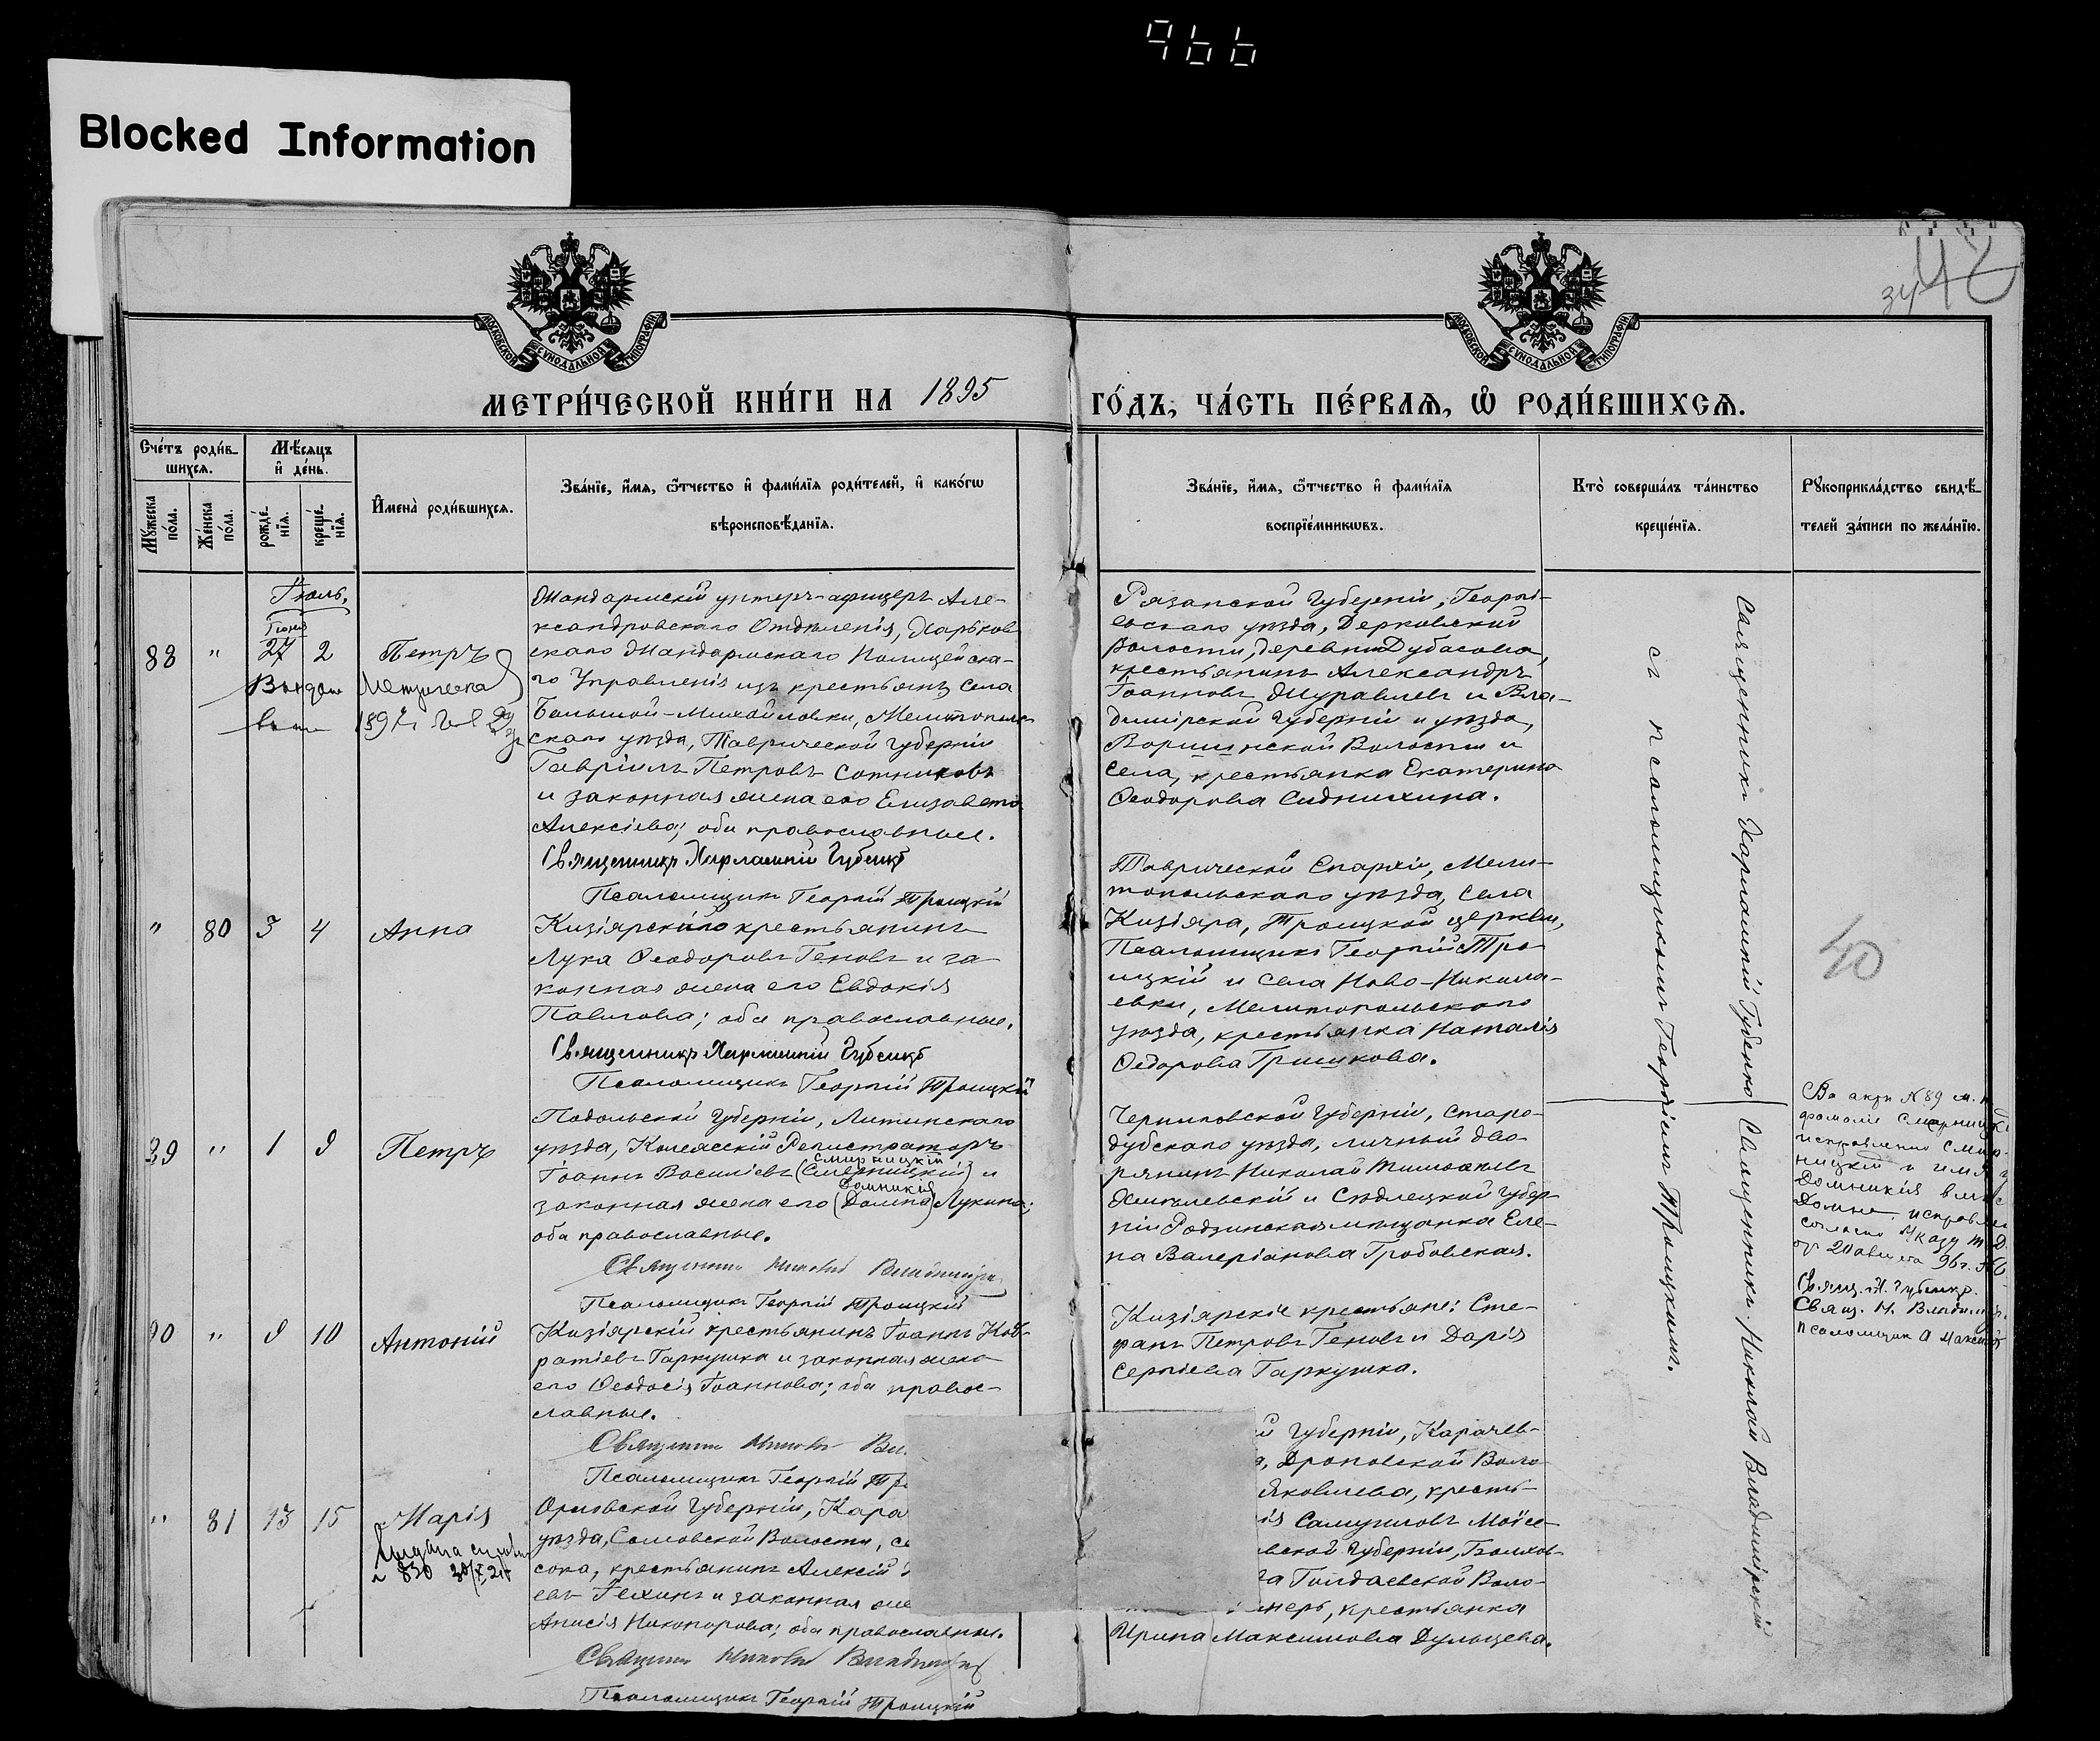 966
Blocked Information
42
МОСКОВСКОЙ СУНОДАЛЬНОЙ ТИПОГРАФІИ
МОСКОВСКОЙ СУНОДАЛЬНОЙ ТИПОГРАФІИ
МЕТРИ́ЧЕСКОЙ КНИ́ГИ НА 1895
ГО́ДЪ, ЧА́СТЬ ПЕ́РВАЯ, Ѡ҆ РОДИ́ВШИХСЯ.
Сче́тъ роди́в-
шихся.
Мꙋ́жеска по́ла.
Же́нска по́ла.
Мѣ́сяцъ
и҆ де́нь.
рожде́-
нїя.
креще́-
нїя.
И҆мена̀ роди́вшихся.
Зва́нїе, и҆́мя, ѻ҆́тчество и҆ фами́лїя роди́телей, и҆ како́гѡ
вѣроисповѣ́данїя.
Зва́нїе, и҆́мя, ѻ҆́тчество и҆ фами́лїя
воспрїе́мникѡвъ.
Кто̀ соверша́лъ та́инство
креще́нїя.
Рꙋкоприкла́дство свидѣ́-
телей за́писи по жела́нїю.
Іюль.
Іюня
88 " 27 2 Петръ
Жандармскій унтеръ-афицеръ Але-
ксандровскаго Отдѣленія, Харьков
скаго Жандармскаго Полицейска-
го Управленія изъ крестьянъ села
Большой-Михайловки, Мелитополь-
скаго уѣзда, Таврической губерніи
Гавріилъ Петровъ Сотниковъ
и законная жена его Елизавета
Алексіева; оба православные.
Священникъ Харлампій Губенко
Псаломщикъ Георгій Троицкій
Рязанской Губерніи, Георгі-
евскаго уѣзда, Дерковской
Волости, деревни Дубасова,
крестьянинъ Александръ
Іоанновъ Журавлевъ и Вла-
димірской губерніи и уѣзда,
Воршинской Волости и
села, крестьянка Екатерина
Ѳеодорова Сиднихина.
" 80 3 4 Анна
Кизіярскій крестьянинъ
Лука Ѳеодоровъ Геновъ и за-
конная жена его Евдокія
Павлова; оба православные.
Священникъ Харлампій Губенко
Псаломщикъ Георгій Троицкій
Таврической Епархіи, Мели-
топольскаго уѣзда, села
Кизіяра, Троицкой церкви,
Псаломщикъ Георгій Тро-
ицкій и села Ново-Никола-
евки, Мелитопольскаго
уѣзда, крестьянка Наталія
Ѳедорова Гришкова.
40
89 " 1 9 Петръ
Подольской Губерніи, Литинскаго
уѣзда, Колежскій Регистраторъ
Смирницкій
Іоаннъ Василіевъ (Смерницкій) и
Домникія
законная жена его (Домна) Лукина;
оба православные.
Священникъ Николай Владимірскій
Псаломщикъ Георгій Троицкій
Черниговской Губерніи, Старо-
дубскаго уѣзда, личный дво-
рянинъ Николай Тимоѳеевъ
и Сѣдлецкой губер-
ніи Родзинская мѣщанка Еле-
на Валеріанова Гробовская.
Въ акти № 89 м. п.
фамилія Смерницкі
исправлено Смир-
ницкій и имя
Домникія вмѣс
Домна исправле
согласно Указу Т. Д.
отъ 20 августа 96 г. №
Свящ. Х. Губенко.
Свящ. Н. Владимір.
псаломщик
90 " 9 10 Антоній
Кизіярскій крестьянинъ Іоаннъ Код-
ратіевъ Гаркушка и законная жена
его Ѳеодосія Іоаннова; оба правос-
лавные.
Священникъ Николай Вл
Псаломщикъ Георгій Тр
Кизіярскіе крестьяне: Сте-
фанъ Петровъ Геновъ и Дарія
Сергіева Гаркушка.
" 81 13 15 Марія
830
Орловской Губерніи, Кара
уѣзда, Самовской Волости, се
сока, крестьянинъ Алексій
евъ Гехинъ и законная же
Анисія Никонорова; оба православные.
Священникъ Николай Владимірскій
Псаломщикъ Георгій Троицкій
й губерніи, Карачев-
а, Дроновской Воло-
Яковлева, кресть-
Самуиловъ Мойсе-
вской губерніи, Болхов-
га Гондаевской Воло-
крестьянка
Ирина Максимова Дульцева.
Священникъ Харлампій Губенко
Священникъ Николай Владимірскій
съ псаломщикомъ Георгіемъ Троицкимъ.